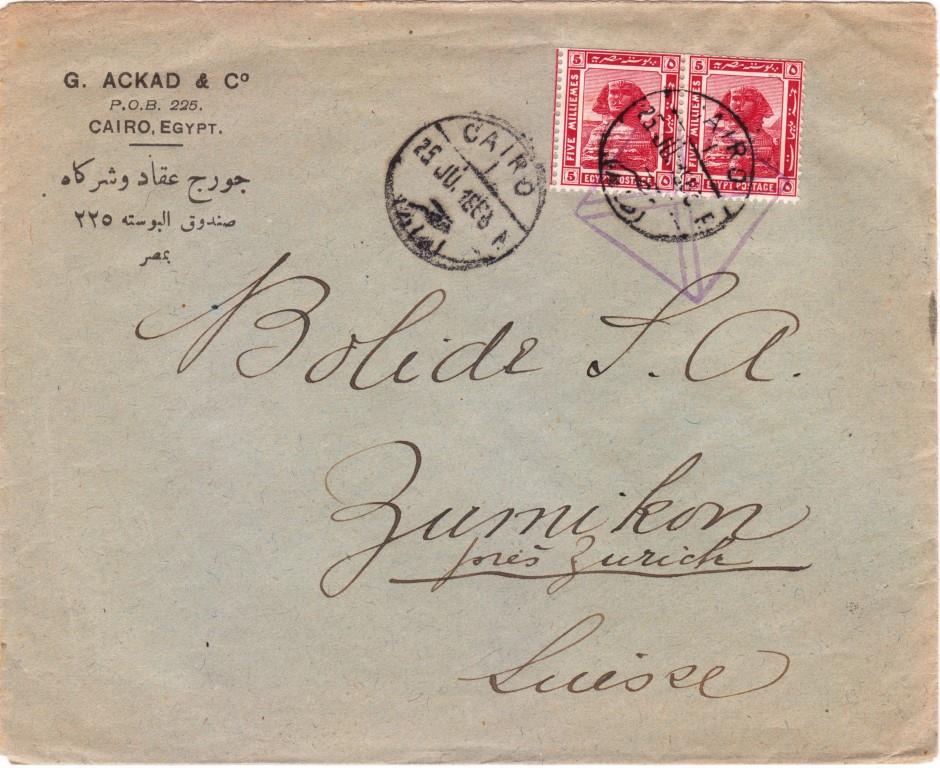 G. ACKAD & Cº
P.O.B. 225.
CAIRO, EGYPT.
جورج عقاد وشركاه
صندوق البوسته ٢٢٥
بمصر
CAIRO
25 JU.
5 ٥
FIVE MILLIEMES
5 EGYPT POSTAGE ٥
5 ٥
FIVE MILLIEMES
EGYPT POSTAGE ٥
CAIRO
25 JU.
Bolide S. A.
Zumikon
près Zurich
Suisse